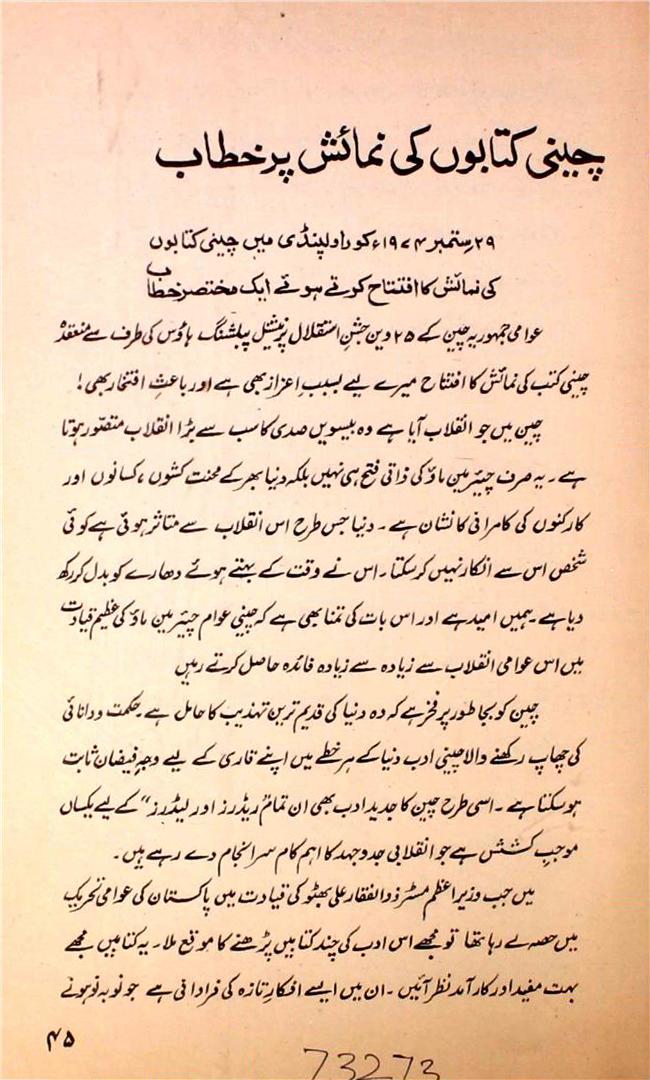 چینی کتابوں کی نمائش پر خطاب
۲۹ ستمبر ۱۹۷۴ء کو راولپنڈی میں چینی کتابوں
کی نمائش کا افتتاح کرتے ہوئے ایک مختصر خطاب
عوامی جمہوریہ چین کے ۲۵ ویں جشنِ استقلال پر نیشنل پبلشنگ ہاؤس کی طرف سے منعقدہ
چینی کتب کی نمائش کا افتتاح میرے لیے بسببِ اعزاز بھی ہے اور باعثِ افتخار بھی!
چین میں جو انقلاب آیا ہے وہ بیسویں صدی کا سب سے بڑا انقلاب متصوّر ہوتا
ہے۔ یہ صرف چیئرمین ماؤ کی ذاتی فتح ہی نہیں بلکہ دنیا بھر کے محنت کشوں، کسانوں اور
کارکنوں کی کامرانی کا نشان ہے۔ دنیا جس طرح اس انقلاب سے متاثر ہوئی ہے کوئی
شخص اس سے انکار نہیں کر سکتا۔ اس نے وقت کے بہتے ہوئے دھارے کو بدل کر رکھ
دیا ہے۔ ہمیں امید ہے اور اس بات کی تمنا بھی ہے کہ چینی عوام چیئرمین ماؤ کی عظیم قیادت
میں اس عوامی انقلاب سے زیادہ سے زیادہ فائدہ حاصل کرتے رہیں
چین کو بجا طور پر فخر ہے کہ وہ دنیا کی قدیم ترین تہذیب کا حامل ہے۔ حکمت و دانائی
کی چھاپ رکھنے والا چینی ادب دنیا کے ہر خطے میں اپنے قاری کے لیے وجہِ فیضان ثابت
ہو سکتا ہے۔ اسی طرح چین کا جدید ادب بھی ان تمام ریڈرز اور لیڈرز" کے لیے یکساں
موجبِ کشش ہے جو انقلابی جدوجہد کا اہم کام سرانجام دے رہے ہیں۔
میں جب وزیراعظم مسٹر ذوالفقار علی بھٹو کی قیادت میں پاکستان کی عوامی تحریک
میں حصہ لے رہا تھا تو مجھے اس ادب کی چند کتابیں پڑھنے کا موقع ملا۔ یہ کتابیں مجھے
بہت مفید اور کارآمد نظر آئیں۔ ان میں ایسے افکارِ تازہ کی فراوانی ہے جو نو بہ نو ہونے
۴۵
73273